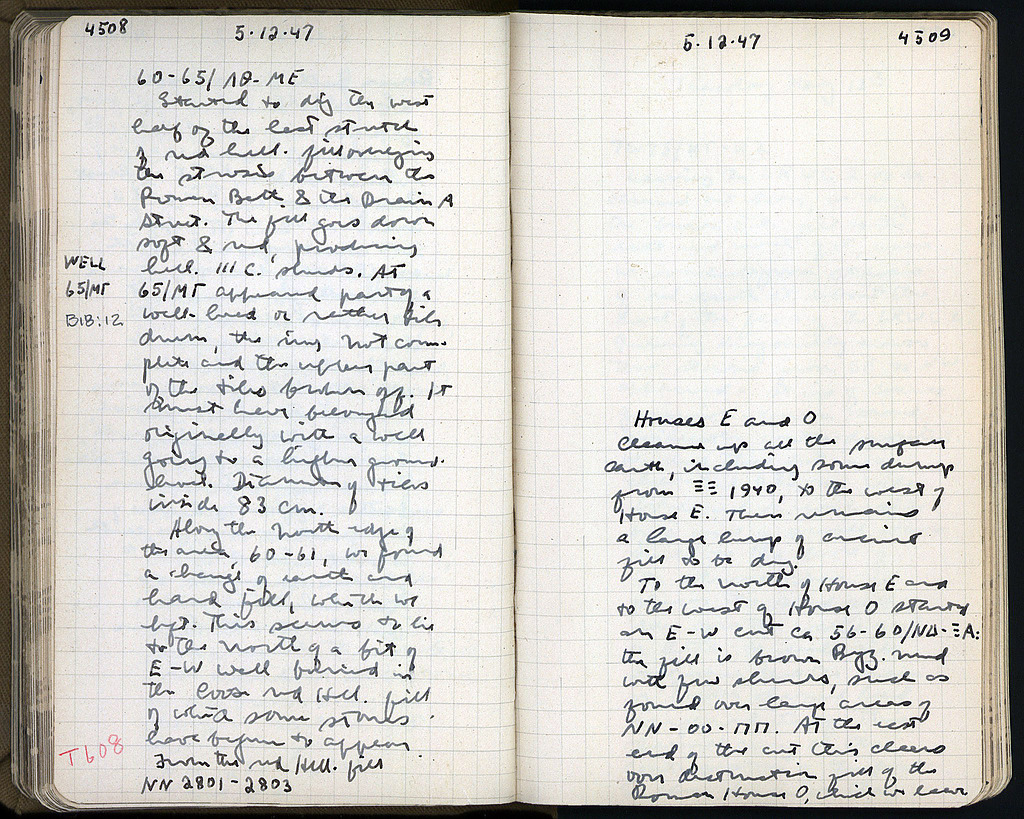 4508
5·12·47
60-65/ ΛΘ-ΜΕ
Started to dig the west
half of the last stretch
of red hell. fill overlying
the stosis between the
Roman Bath & the Drain A
Street. The fill goes down
soft & red, producing
hell. III C. sherds. At
WELL
65/ΜΓ
B18:12
65/ΜΓ appeared part of a
well-head or rather tile
drum, the ring not com-
plete and the upper part
of the tiles broken off. It
must have belonged
originally with a well
going to a higher ground-
level. Diameter of tiles
inside 83 cm.
Along the north edge of
the area, 60-61, we found
a change of earth and
hard fill, which we
left. This seems to lie
to the north of a bit of
E-W wall buried in
the loose red Hell. fill
of which some stones
have begun to appear.
T608
From the red Hell. fill
NN 2801-2803
5·12·47
4509
Houses E and O
Cleaned up all the surface
earth, including some dump
from ΞΞ 1940, to the west of
House E. There remains
a large lump of ancient
fill to be dug.
To the north of House E and
to the west of House O started
an E-W cut ca 56-60/ΝΔ-ΞΑ:
the fill is brown Byz. mud
with few sherds, such as
found over large areas of
NN-OO-ΠΠ. At the east
end of the cut this clears
over destruction fill of the
Roman House O, which we leave